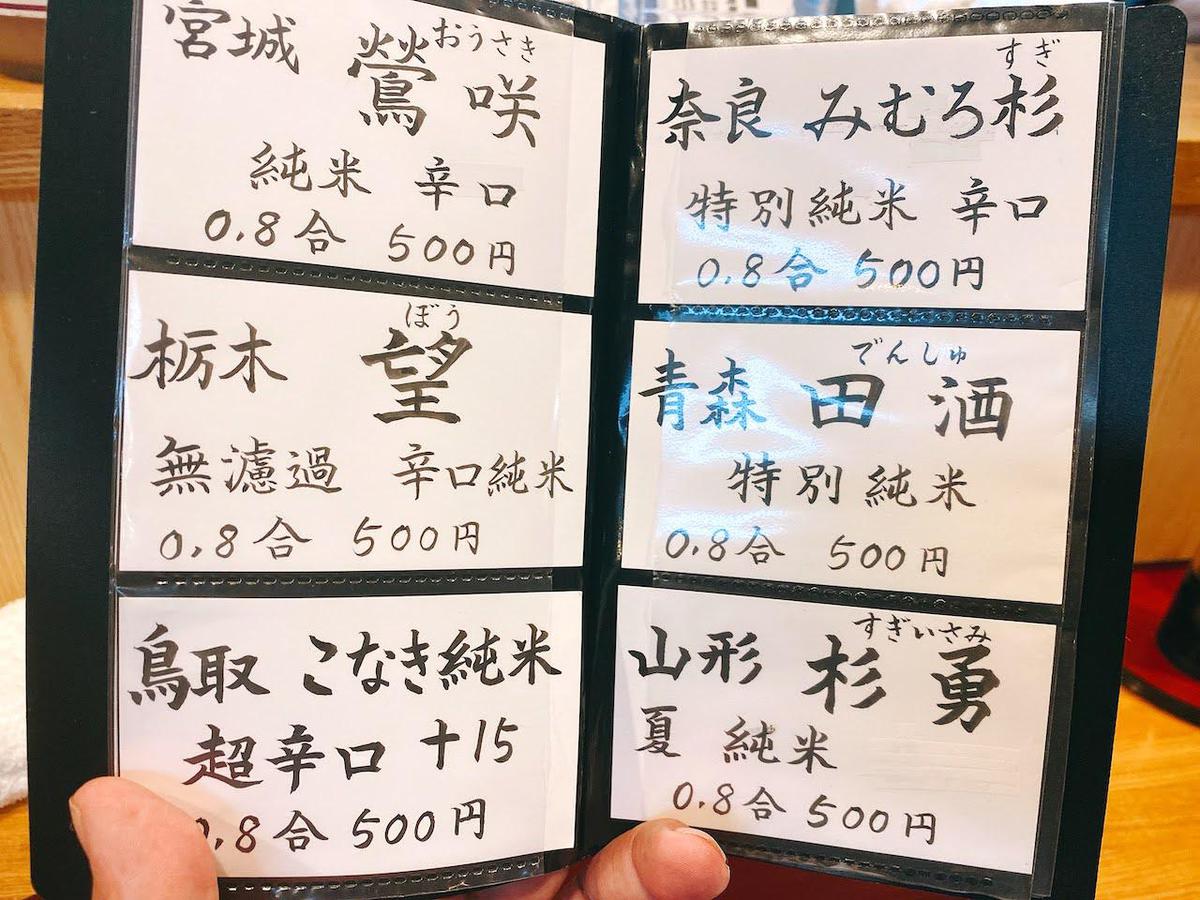 おうさき
宮城 鶯咲
純米 辛口
0.8合 500円
ぼう
栃木 望
無濾過 辛口純米
0.8合 500円
鳥取 こなき純米
超辛口 +15
0.8合 500円
すぎ
奈良 みむろ杉
特別純米 辛口
0.8合 500円
でんしゅ
青森 田酒
特別純米
0.8合 500円
すぎいさみ
山形 杉勇
夏 純米
0.8合 500円